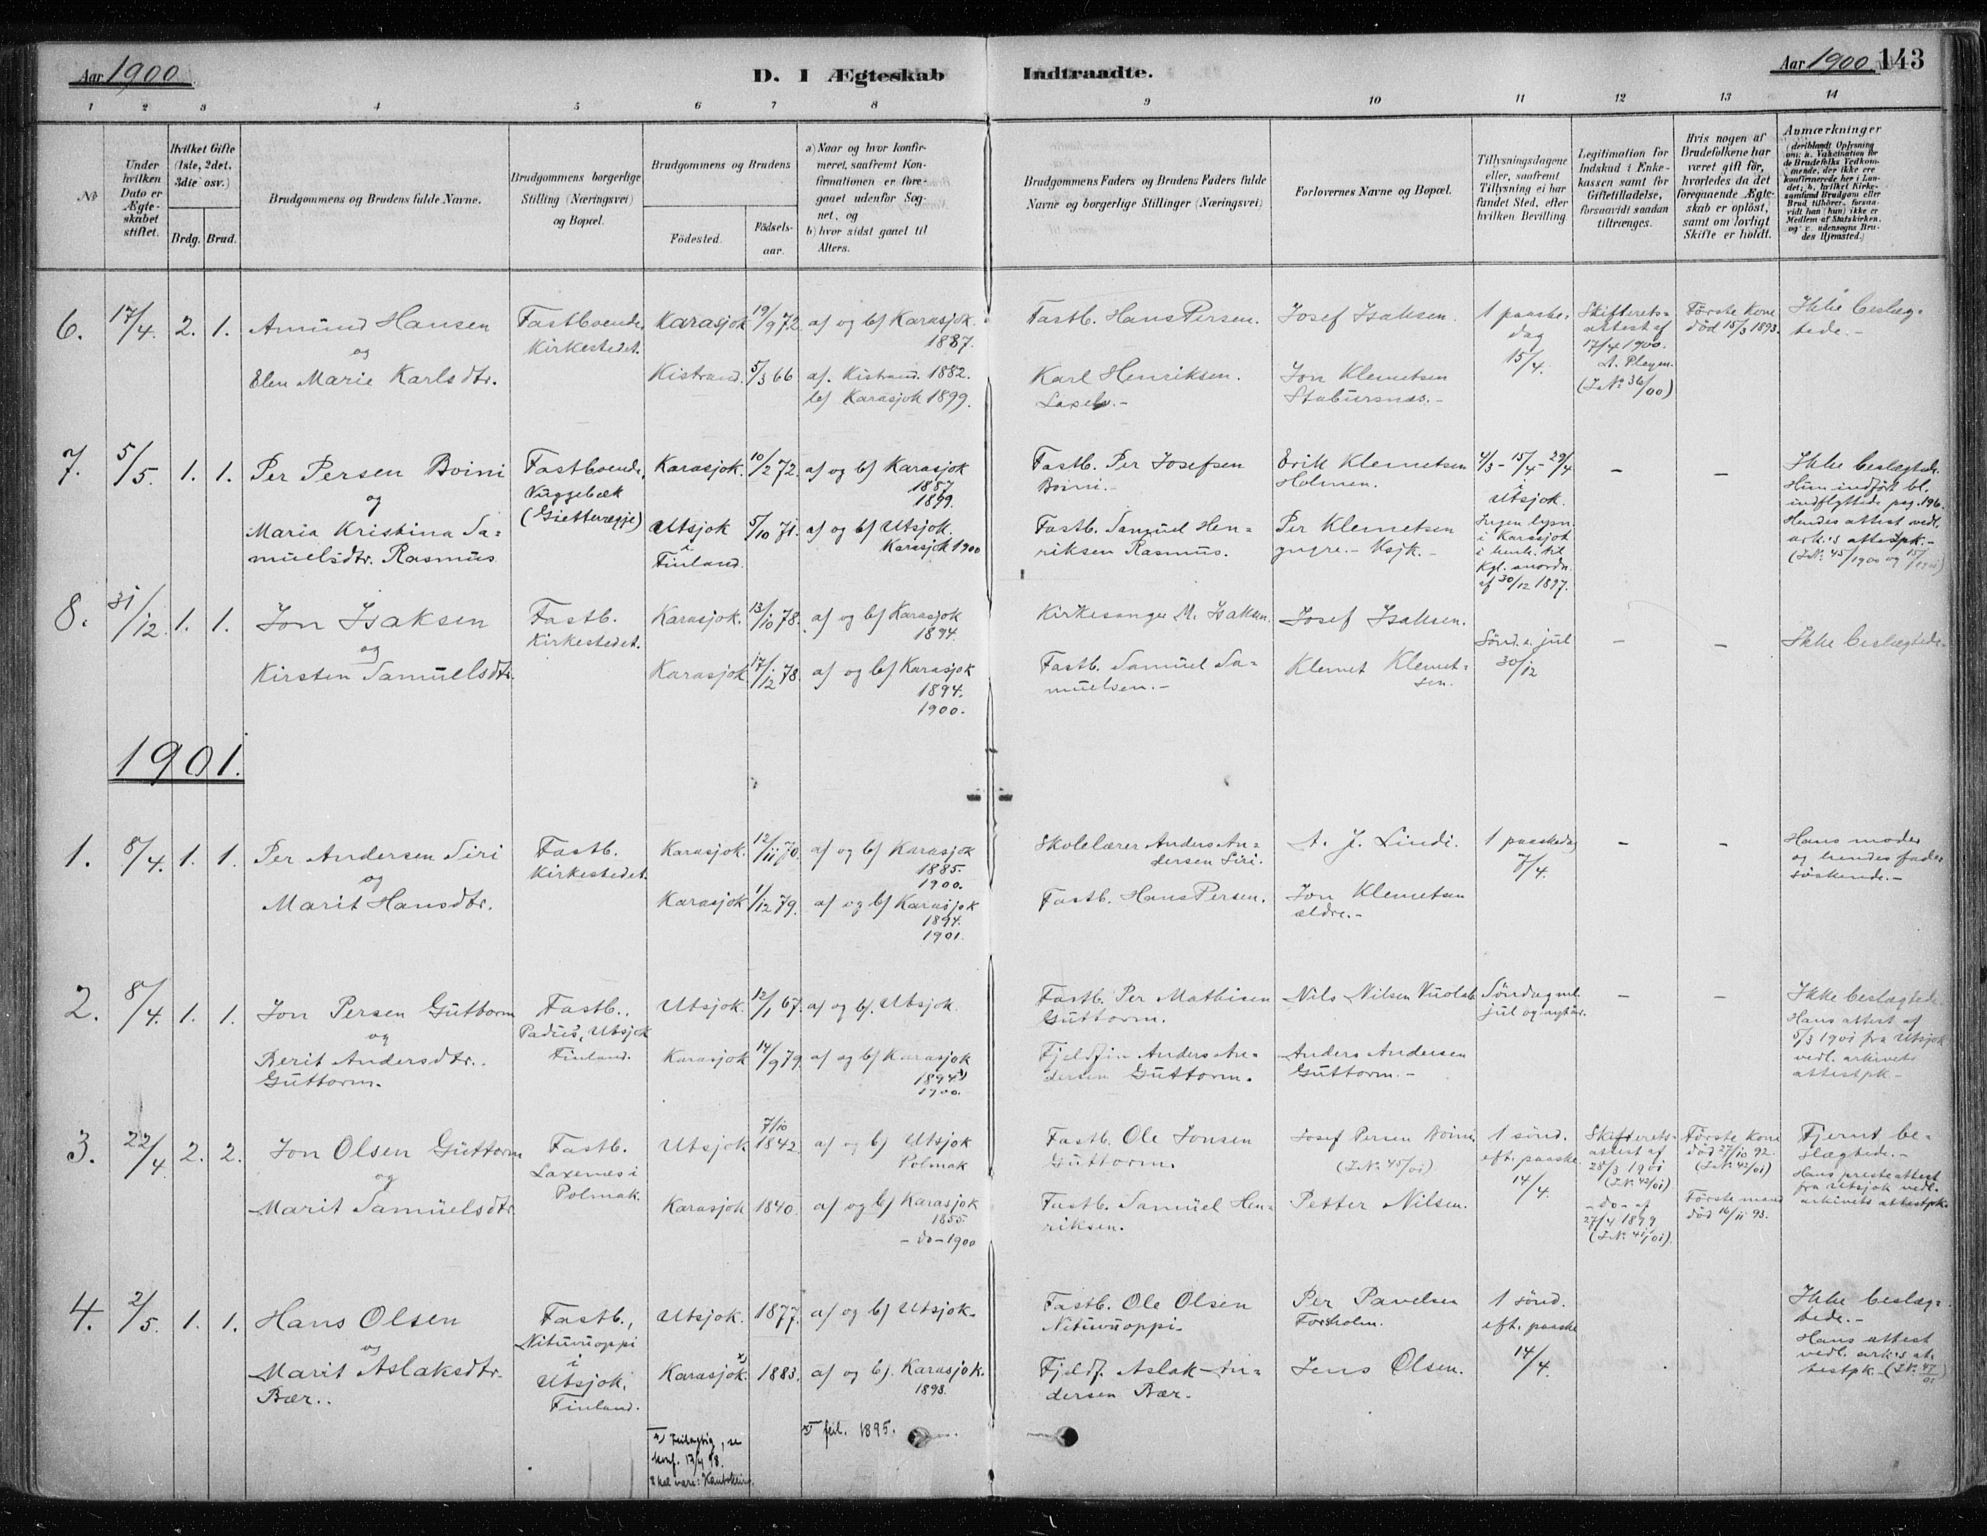 Aar 1900
D. I Ægteskab Indtraadte.
Aar 1900 143
1 2 3 4 5 6 7 8 9 10 11 12 13 14
No
Under hvilken Dato er Ægteskabet stiftet.
Hvilket Gifte (1ste, 2det, 3die osv.)
Brdg. Brud.
Brudgommens og Brudens fulde Navne.
Brudgommens borgerlige Stilling (Næringsvei) og Bopæl.
Brudgommens og Brudens
Fødested.
Fødselsaar.
a) Naar og hvor konfirmeret, saafremt Konfirmationen er foregaaet udenfor Sognet, og
b) hvor sidst gaaet til Alters.
Brudgommens Faders og Brudens Faders fulde Navne og borgerlige Stillinger (Næringsvei)
Forlovernes Navne og Bopæl.
Tillysningsdagene eller, saafremt Tillysning ei har fundet Sted, efter hvilken Bevilling.
Legitimation for Indskud i Enkekassen samt for Giftetilladelse, forsaavidt saadan tiltrænges.
Hvis nogen af Brudefolkene har været gift før, hvorledes da det foregaaende Ægteskab er opløst, samt om lovligt Skifte er holdt.
Anmærkninger
(deriblandt Oplysning om: a. Vaccination for de Brudefolks Vedkommende, der ikke ere konfirmerede her i Landet; b. hvilket Kirkesamfund Brudgom eller Brud tilhører, forsaavidt han (hun) ikke er Medlem af Statskirken, og c. udensogns Brudes Hjemsted.)
6. 17/4 2. 1. Amund Hansen
og
Elen Marie Karlsdtr.
Fastboende
Kirkestedet.
Karasjok 19/9 72 af og b/ Karasjok
1887.
Kistrand. 5/3 66 af. Kistrand. 1882.
b/ Karasjok 1899.
Fastb. Hans Persen.
Karl Henriksen.
Laxelv.-
Josef Isaksen.
Jon Klemetsen
Stabursnæs.-
1 paaskedag
15/4.
Skifterets-
attest af
17/4 1900.
(J.No. 36/00)
Første Kone
død 15/3 1893.
Ikke beslæg-
tede.-
7. 5/5. 1. 1. Per Persen Boini
og
Maria Kristina Sa-
muelsdtr. Rasmus
Fastboende,
Vuggebæk
Karasjok. 10/2 72. af og b/ Karasjok
1887
1899.
Utsjok
i
Finland.
5/10 71. af og b/ Utsjok.
Karasjok 1900
Fastb. Per Josefsen
Boini.-
Fastb. Samuel Hen-
riksen Rasmus.
Erik Klemetsen
Holmen.-
Per Klemetsen
yngre.-
4/3 - 15/4 - 29/4
i
Utsjok.
Ingen lysn.
i Karasjok
i henh. til
Kgl. anordn.
af 30/12 1897.
-
-
Ikke beslægtede.
Hun indført bl.
indflyttede pag. 196.
Hendes attest vedl.
ark.s attestpk.-
8. 31/12. 1. 1. Jon Isaksen
og
Kirsten Samuelsdtr.
Fastb.
Kirkestedet.
Karasjok. 13/10 78. af og b/ Karasjok
1894.
Karasjok. 17/12 78. af og b/ Karasjok
1894.
1900.
Kirkesanger M. Isaksen.
Fastb. Samuel Sa-
muelsen.-
Josef Isaksen.
Klemet Klemet-
sen.
Sønd. e. jul
30/12
-
-
Ikke beslægtede.
1901.
1. 8/4. 1. 1. Per Andersen Siri
og
Marit Hansdtr.
Fastb.
Kirkestedet.
Karasjok. 12/11 70. af og b/ Karasjok
1885.
1900.
Karasjok 1/12 79. af og b/ Karasjok
1894.
1901.
Skolelærer Anders An-
dersen Siri.
Fastb. Hans Persen.
A. J. Lindi.
Jon Klemetsen
ældre.-
1 paaskedag
7/4.
-
-
Hans moder
og hendes fader
søskende.-
2. 8/4. 1. 1. Jon Persen Guttorm
og
Berit Andersdtr.
Guttorm.
Fastb.,
Padus, Utsjok
Finland.
Utsjok. 12/1 67. af og b/. Utsjok.
Karasjok 14/9 79. af og b/ Karasjok
1894 x)
1900.
Fastb. Per Mathisen
Guttorm.
Fjeldfin Anders An-
dersen Guttorm.
Nils Nilsen Vuolab
Anders Andersen
Guttorm.-
Søndag ml.
jul og nytår.
-
-
Ikke beslægtede.
Hans attest af
5/3 1901 fra Utsjok
vedl. arkivets
attestpk.-
3. 22/4. 2. 2. Jon Olsen Guttorm
og
Marit Samuelsdtr.
Fastb.
Laxenæs i
Polmak.
Utsjok 7/10 1842. af og b/ Utsjok
Polmak
Karasjok 1840. af og b/ Karasjok
1855.
-do-1900
Fastb. Ole Jonsen
Guttorm.
Fastb. Samuel Hen-
riksen.
Josef Persen Boini
(J.No. 45/01)
Petter Nilsen.
1 sønd.
eft. paaske
14/4.
Skifterets-
attest af
28/3 1901
(J.No. 42/01)
-do- af
27/4 1899
(J.No. 41/01).
Første Kone
død 27/10 92.
(J.No. 42/01)
Første mand
død 16/11 93.
Fjernt be-
slægtede.-
Hans presteattest
fra Utsjok vedl.
arkivets attestpk.
4. 2/5. 1. 1. Hans Olsen
og
Marit Aslaksdtr.
Bær..
Fastb.,
Nituvuoppi
i
Utsjok,
Finland.
Utsjok. 1877. af og b/ Utsjok.
Karasjok x) 1883. af og b/. Karasjok.
1898.
Fastb. Ole Olsen
Nituvuoppi-
Fjeldf. Aslak An-
dersen Bær.
Per Pavelsen
Forholm.
Jens Olsen.
1 sønd.
eft. paaske
14/4.
Ikke beslæg-
tede.-
Hans attest
vedl. ark.s at-
testpk.- (J.No. 47/01)
x) Feilagtig, se
konf. 13/4 98.
Skal være: Kautokeino.
x) feil. 1895.